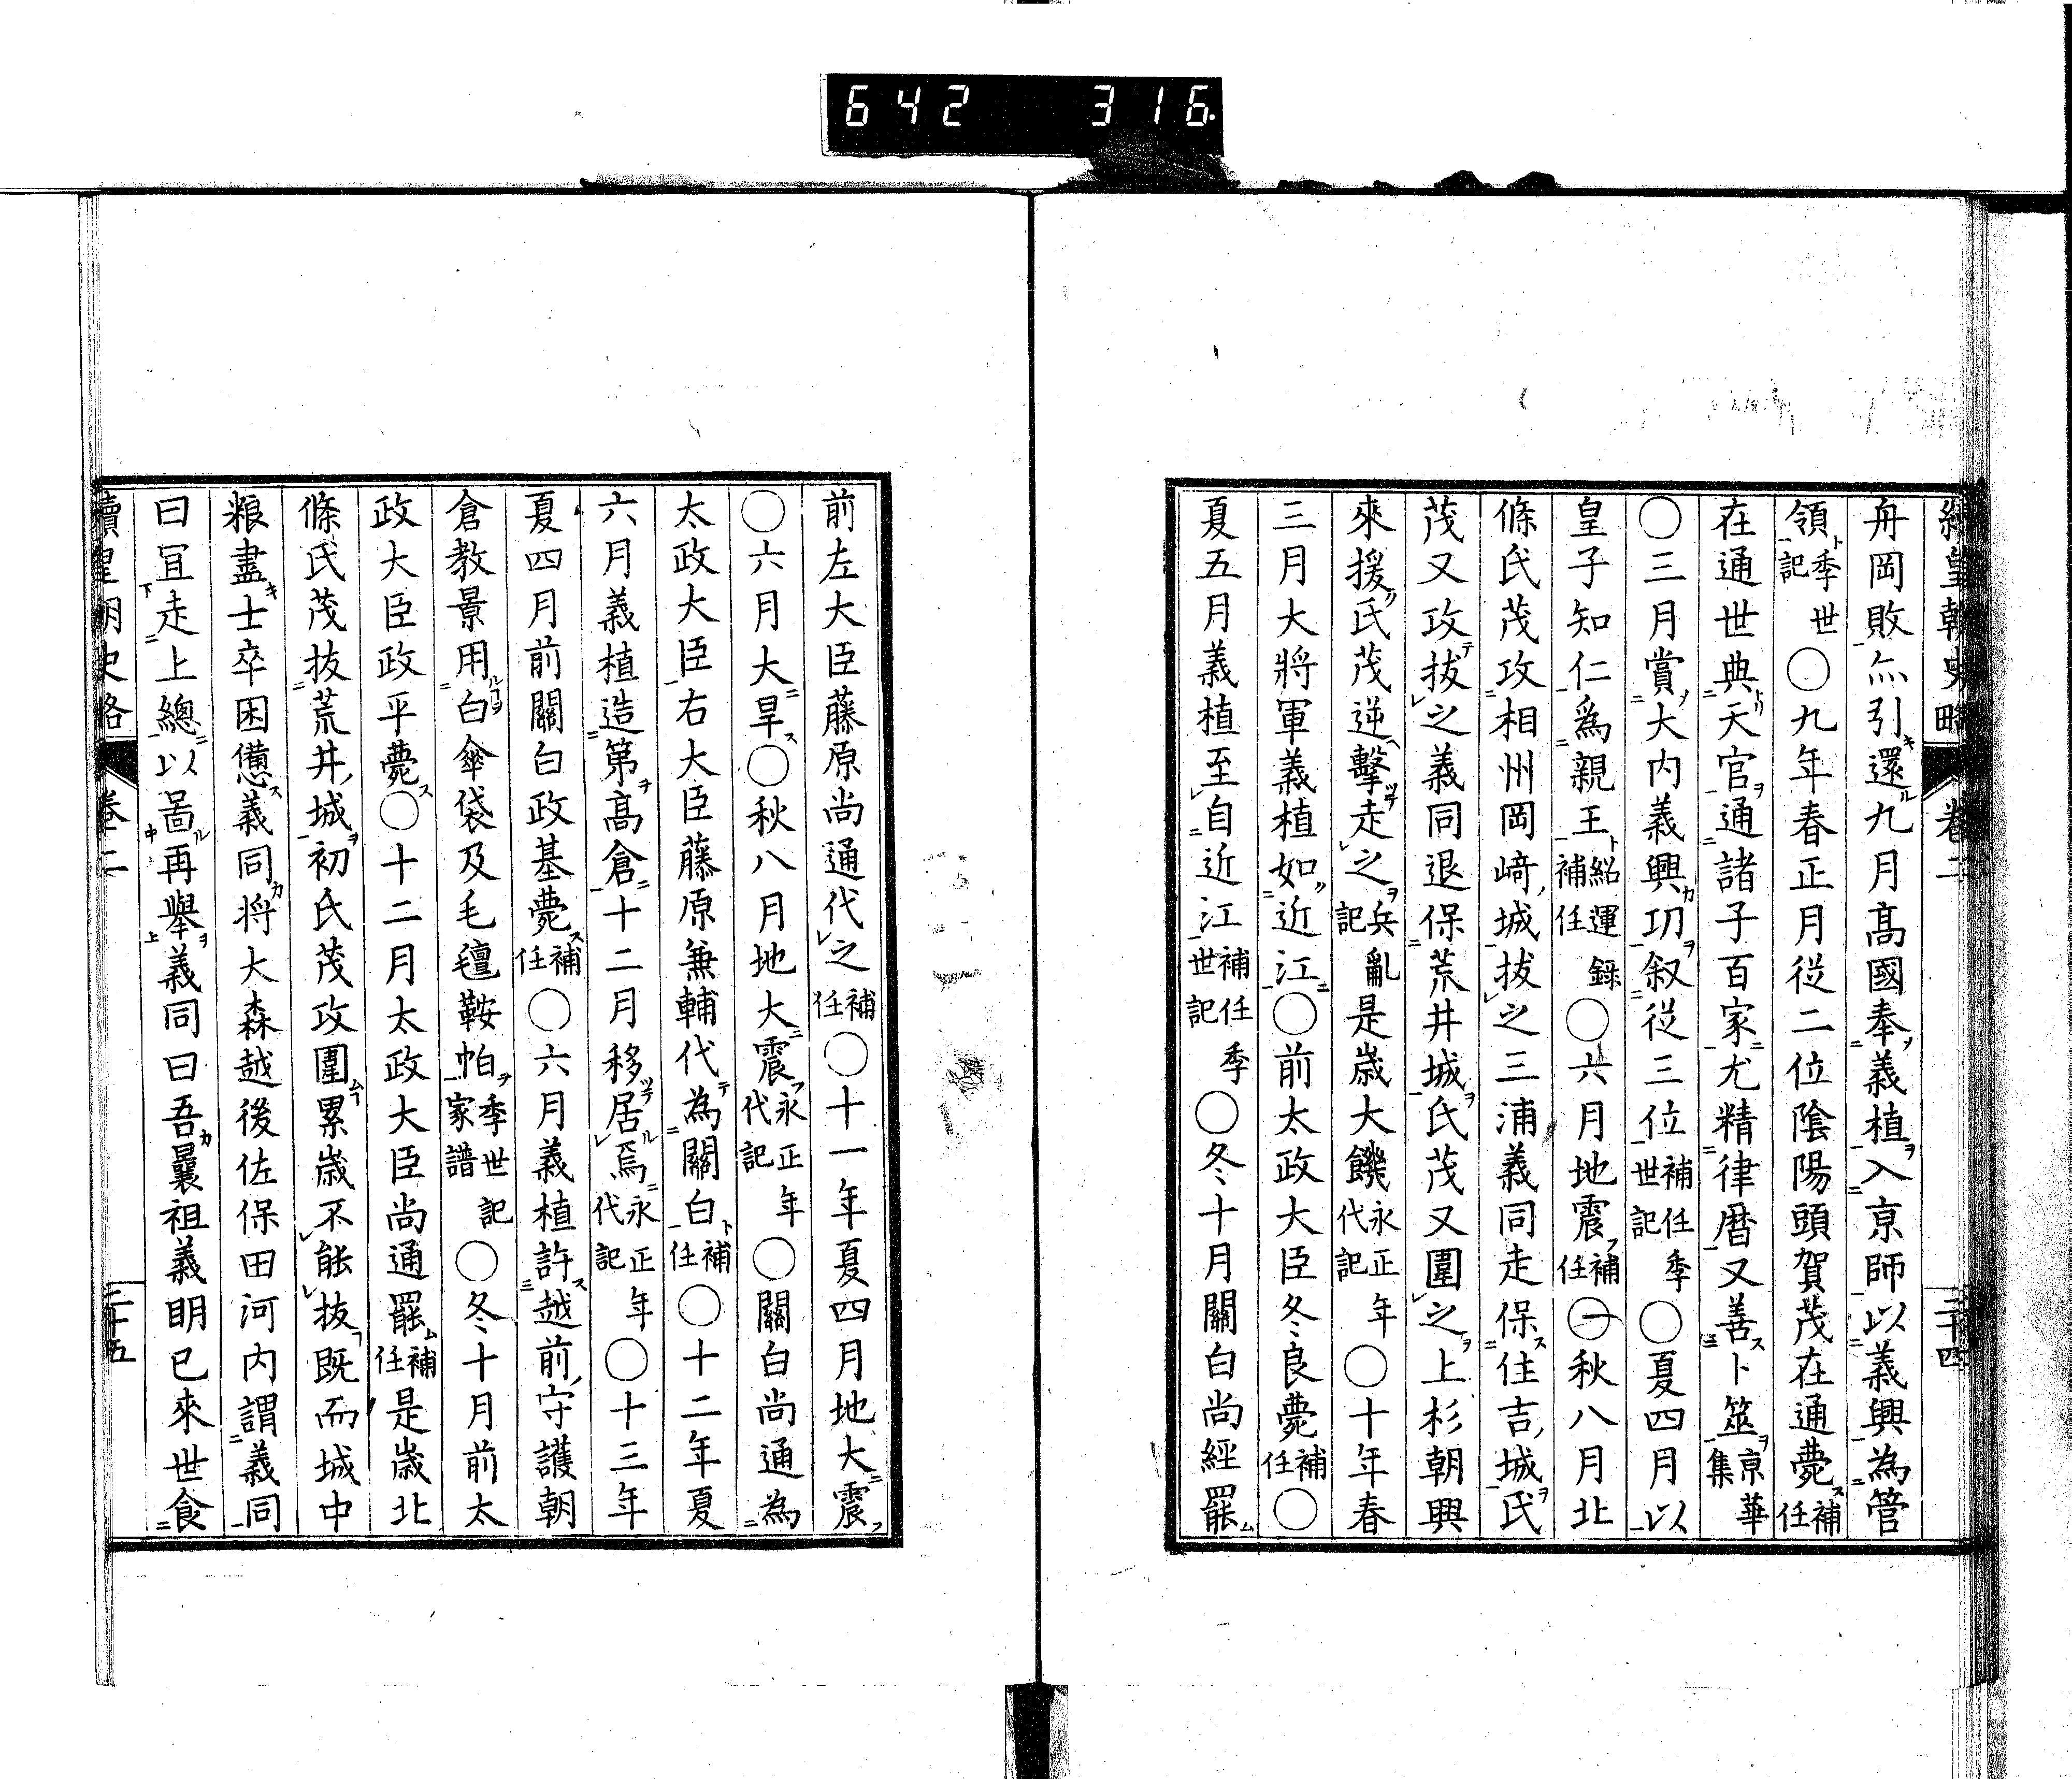 642 316
續皇朝史略 卷二 二十四
舟岡敗亦引還九月髙國奉義植入京師以義興為管
領季世記〇九年春正月從二位陰陽頭賀茂在通薨補任
在通世典天官通諸子百家尤精律暦又善卜筮京華集
〇三月賞大内義興功叙從三位補任季世記〇夏四月以
皇子知仁爲親王紹運録補任〇六月地震補任〇秋八月北
條氏茂攻相州岡﨑城拔之三浦義同走保住吉城氏
茂又攻拔之義同退保荒井城氏茂又圍之上杉朝興
來援氏茂逆擊走之兵亂記是歳大饑永正年代記〇十年春
三月大將軍義植如近江〇前太政大臣冬良薨補任〇
夏五月義植至自近江補任季世記〇冬十月關白尚經罷
前左大臣藤原尚通代之補任〇十一年夏四月地大震
〇六月大旱〇秋八月地大震永正年代記〇關白尚通為
太政大臣右大臣藤原兼輔代為關白補任〇十二年夏
六月義植造第髙倉十二月移居焉永正年代記〇十三年
夏四月前關白政基薨補任〇六月義植許越前守護朝
倉教景用白傘袋及毛氊鞍帕季世記家譜〇冬十月前太
政大臣政平薨〇十二月太政大臣尚通罷補任是歳北
條氏茂拔荒井城初氏茂攻圍累歳不能拔既而城中
粮盡士卒困憊義同将大森越後佐保田河内謂義同
曰宜走上總以啚再舉義同曰吾曩祖義明已來世食
續皇朝史略 卷二 二十五